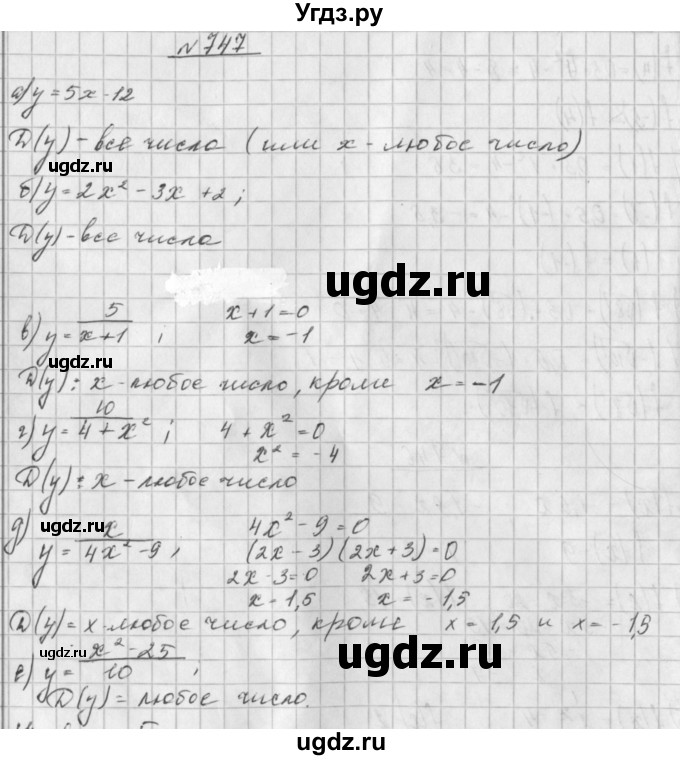 Угдз.ру
№ 747
а) y = 5x - 12
D(y) - все числа (или x - любое число)
ugdz.ru
б) y = 2x² - 3x + 2;
D(y) - все числа
ugdz.ru
в) y = 5/(x+1) ; x + 1 = 0
x = -1
ugdz.ru
D(y): x - любое число, кроме x = -1
г) y = 10/(4 + x²) ; 4 + x² = 0
x² = -4
D(y): x - любое число
ugdz.ru
д) y = x/(4x² - 9) , 4x² - 9 = 0
(2x - 3)(2x + 3) = 0
2x - 3 = 0 2x + 3 = 0
x - 1,5 x = -1,5
D(y) = x - любое число, кроме x = 1,5 и x = -1,5
ugdz.ru
е) y = (x² - 25)/10 ;
D(y) = любое число.
ugdz.ru
ugdz.ru